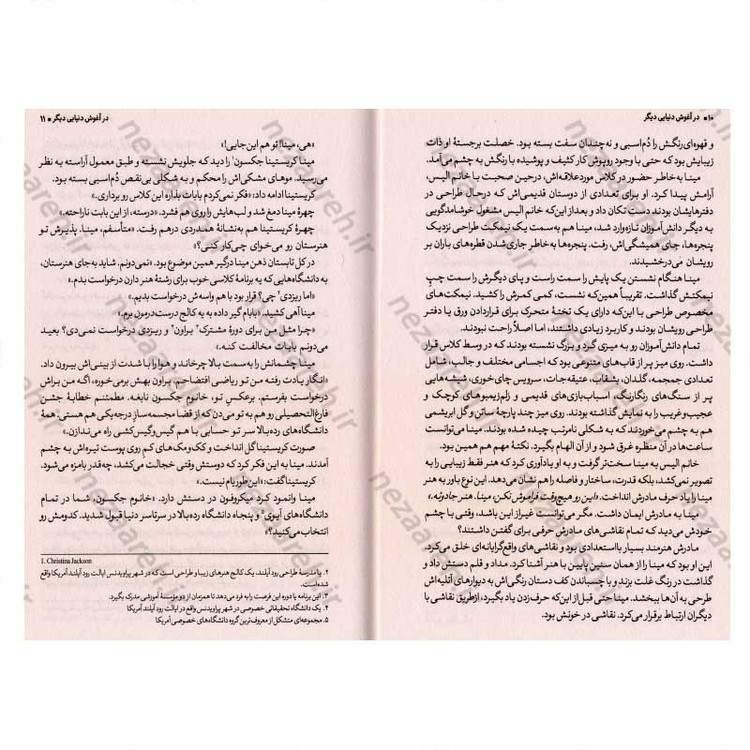 ۱۰ ■ در آغوش دنیایی دیگر
و قهوه‌ای‌رنگش را دُم‌اسبی و نه‌چندان سفت بسته بود. خصلت برجستهٔ او ذات
زیبایش بود که حتی با وجود روپوش کار کثیف و پوشیده با رنگش به چشم می‌آمد.
مینا به‌خاطر حضور در کلاس موردعلاقه‌اش، درحین صحبت با خانم الیس،
آرامش پیدا کرد. او برای تعدادی از دوستان قدیمی‌اش که درحال طراحی در
دفترهایشان بودند دست تکان داد و بعد از این‌که خانم الیس مشغول خوشامدگویی
به دیگر دانش‌آموزان تازه‌وارد شد، مینا هم به‌سمت یک نیمکت طراحی نزدیک
پنجره‌ها، جای همیشگی‌اش، رفت. پنجره‌ها به‌خاطر جاری‌شدن قطره‌های باران بر
رویشان می‌درخشیدند.
مینا هنگام نشستن یک پایش را سمت راست و پای دیگرش را سمت چپِ
نیمکتش گذاشت. تقریباً همین‌که نشست، کمی کمرش را کشید. نیمکت‌های
مخصوص طراحی با این‌که دارای یک تختهٔ متحرک برای قراردادن ورق یا دفتر
طراحی رویشان بودند و کاربرد زیادی داشتند، اما اصلاً راحت نبودند.
تمام دانش‌آموزان رو به میزی گرد و بزرگ نشسته بودند که در وسط کلاس قرار
داشت. روی میز پر از قاب‌های متنوعی بود که اجسامی مختلف و جالب، شامل
تعدادی جمجمه، گلدان، بشقاب، عتیقه‌جات، سرویس چای‌خوری، شیشه‌هایی
پر از سنگ‌های رنگارنگ، اسباب‌بازی‌های قدیمی و زلم‌زیمبوهای کوچک و
عجیب‌وغریب را به نمایش گذاشته بودند. روی میز چند پارچهٔ ساتن و گل ابریشمی
هم به چشم می‌خوردند که به شکلی نامرتب چیده شده بودند. مینا می‌توانست
ساعت‌ها در آن منظره غرق شود و از آن الهام بگیرد. نکتهٔ مهم هم همین بود.
خانم الیس به مینا سخت‌تر گرفت و به او یادآوری کرد که هنر فقط زیبایی را به
تصویر نمی‌کشد، بلکه قدرت، ساختار و فاصله را هم نشان می‌دهد. این نوع باور به هنر
مینا را یاد حرف مادرش انداخت. «این رو هیچ‌وقت فراموش نکن، مینا. هنر جادوئه.»
مینا به مادرش ایمان داشت. مگر می‌توانست غیر از این باشد، وقتی با چشم
خودش می‌دید که تمام نقاشی‌های مادرش حرفی برای گفتن داشتند؟
مادرش هنرمند بسیار بااستعدادی بود و نقاشی‌های واقع‌گرایانه‌ای خلق می‌کرد.
این او بود که مینا را از همان سنین پایین با هنر آشنا کرد. مداد و قلم دستش داد و
گذاشت در رنگ غلت بزند و با چسباندن کف دستان رنگی‌اش به دیوارهای آتلیه‌اش
طرحی به آن‌ها ببخشد. مینا حتی قبل از این‌که حرف‌زدن یاد بگیرد، ازطریق نقاشی با
دیگران ارتباط برقرار می‌کرد. نقاشی در خونش بود.
در آغوش دنیایی دیگر ■ ۱۱
«هی، مینا! تو هم این‌جایی!»
مینا کریستینا جکسون¹ را دید که جلویش نشسته و طبق معمول آراسته به نظر
می‌رسید. موهای مشکی‌اش را محکم و به شکلی بی‌نقص دُم‌اسبی بسته بود.
کریستینا ادامه داد: «فکر نمی‌کردم بابات بذاره این کلاس رو برداری.»
چهرهٔ مینا دمغ شد و لب‌هایش را روی هم فشرد. «درسته، از این بابت ناراحته.»
چهرهٔ کریستینا هم به‌نشانهٔ همدردی درهم رفت. «متأسفم، مینا. پذیرش تو
هنرستان رو می‌خوای چی‌کار کنی؟»
در کل تابستان ذهن مینا درگیر همین موضوع بود. «نمی‌دونم. شاید به‌جای هنرستان،
به دانشگاه‌هایی که یه برنامهٔ کلاسی خوب برای رشتهٔ هنر دارن درخواست بدم.»
«اما ریزدی² چی؟ قرار بود با هم واسه‌ش درخواست بدیم.»
مینا آهی کشید. «بابام گیر داده به یه کالج درست‌درمون برم.»
«چرا مثل من برای دورهٔ مشترک³ براون⁴ و ریزدی درخواست نمی‌دی؟ بعید
می‌دونم بابات مخالفت کنه.»
مینا چشمانش را به سمت بالا چرخاند و هوا را با شدت از بینی‌اش بیرون داد.
«انگار یادت رفته من تو ریاضی افتضاحم. براون بهش برمی‌خوره، اگه من براش
درخواست بفرستم. برعکسِ تو، خانوم جکسون نابغه. مطمئنم خطابهٔ جشن
فارغ‌التحصیلی رو هم به تو می‌دن که از قضا مجسمه‌سازِ درجه‌یکی هم هستی. همهٔ
دانشگاه‌های رده‌بالا سر تو حسابی با هم گیس‌وگیس‌کشی راه می‌ندازن.»
صورت کریستینا گل انداخت و کک‌ومک‌های کم روی پوست تیره‌اش به چشم
آمدند. مینا به این فکر کرد که دوستش وقتی خجالت می‌کشد، چه‌قدر بامزه می‌شود.
کریستینا گفت: «این‌طوریام نیست.»
مینا وانمود کرد میکروفون در دستش دارد. «خانوم جکسون، شما در تمام
دانشگاه‌های آیوی⁵ و پنجاه دانشگاه رده‌بالا در سرتاسر دنیا قبول شدید. کدومش رو
انتخاب می‌کنید؟»
1. Christina Jackson
۲. یا مدرسهٔ طراحی رود آیلند، یک کالج هنرهای زیبا و طراحی است که در شهر پراویدنس ایالت رود آیلند آمریکا واقع
شده‌است.
۳. این برنامه یا دوره این فرصت را به فرد می‌دهد تا همزمان از دو مؤسسهٔ آموزشی مدرک بگیرد.
۴. یک دانشگاه تحقیقاتی خصوصی در شهر پراویدنس واقع در ایالت رود آیلند آمریکا
۵. مجموعه‌ای متشکل از معروف‌ترین گروه دانشگاه‌های خصوصی آمریکا
nezaareh.ir